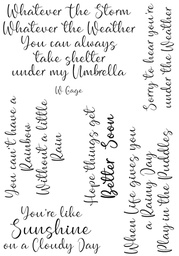 Whatever the Storm
Whatever the Weather
You can always
take shelter
under my Umbrella
Sorry to hear you're
under the Weather
You can't have a
Rainbow
Without a little
Rain
Hope things get
Better Soon
When Life gives you
a Rainy Day
Play in the Puddles
You're like
Sunshine
on a Cloudy Day